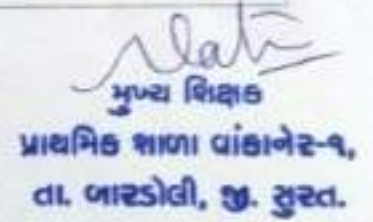 મુખ્ય શિક્ષક
પ્રાથમિક શાળા વાંકાનેર-૧,
તા. બારડોલી, જી. સુરત.